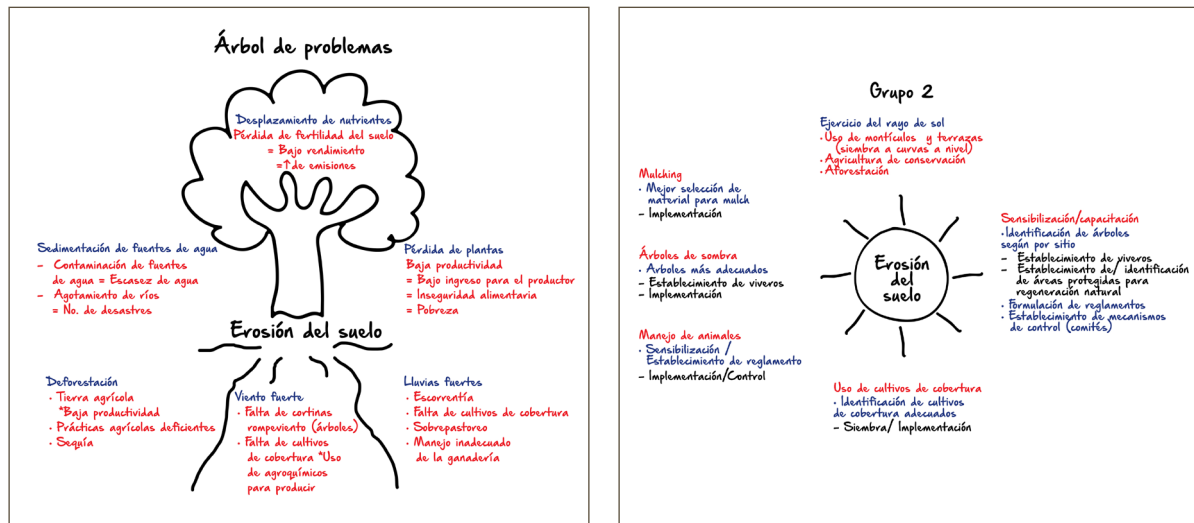 Árbol de problemas
Desplazamiento de nutrientes
Pérdida de fertilidad del suelo
= Bajo rendimiento
=↑ de emisiones
Sedimentación de fuentes de agua
- Contaminación de fuentes
de agua = Escasez de agua
- Agotamiento de ríos
= No. de desastres
Pérdida de plantas
Baja productividad
= Bajo ingreso para el productor
= Inseguridad alimentaria
= Pobreza
Erosión del suelo
Deforestación
· Tierra agrícola
*Baja productividad
· Prácticas agrícolas deficientes
· Sequía
Viento fuerte
· Falta de cortinas
rompeviento (árboles)
· Falta de cultivos
de cobertura *Uso
de agroquímicos
para producir
Lluvias fuertes
· Escorrentía
· Falta de cultivos de cobertura
· Sobrepastoreo
· Manejo inadecuado
de la ganadería
Grupo 2
Ejercicio del rayo de sol
· Uso de montículos y terrazas
(siembra a curvas a nivel)
· Agricultura de conservación
· Aforestación
Mulching
· Mejor selección de
material para mulch
- Implementación
Árboles de sombra
· Arboles más adecuados
- Establecimiento de viveros
- Implementación
Manejo de animales
· Sensibilización /
Establecimiento de reglamento
- Implementación/Control
Erosión
del
suelo
Sensibilización/capacitación
· Identificación de árboles
según por sitio
- Establecimiento de viveros
- Establecimiento de/ identificación
de áreas protegidas para
regeneración natural
· Formulación de reglamentos
· Establecimiento de mecanismos
de control (comités)
Uso de cultivos de cobertura
· Identificación de cultivos
de cobertura adecuados
- Siembra/ Implementación